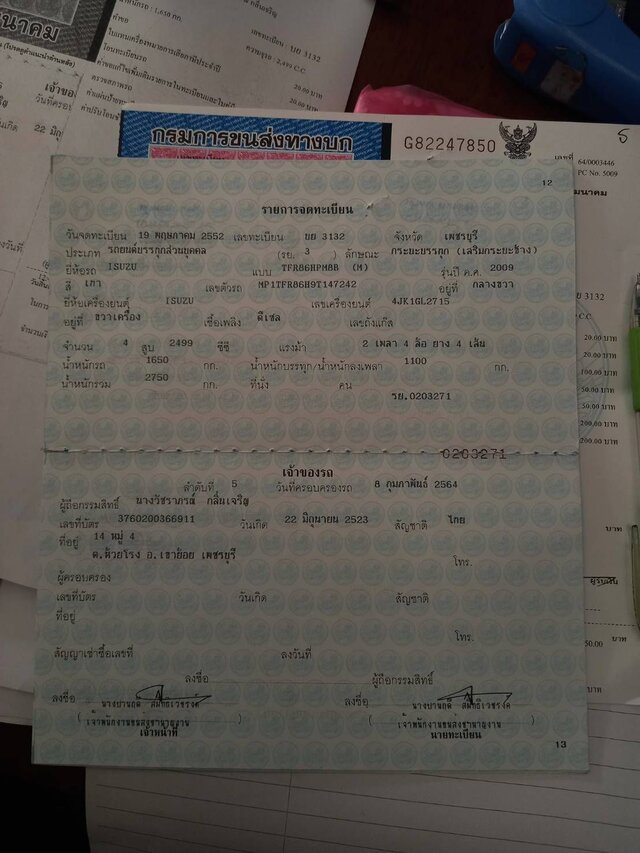 นาคม
น้ำหนักรถ : 1,650 กก.
เลขทะเบียน : บย 3132
ความจุ : 2,499 C.C
20.00 บาท
ค่าขอ
โอนทะเบียนรถ
ตรวจสภาพรถ
เจ้าของ
วันที่ครอบ
22 มิถุ
กรมการขนส่งทางบก
G82247850
5
เลขที่ 64/0003446
PC No. 5009
12
รายการจดทะเบียน
วันจดทะเบียน 19 พฤษภาคม 2552 เลขทะเบียน บย 3132 จังหวัด เพชรบุรี
ประเภท รถยนต์บรรทุกส่วนบุคคล (รย. 3 ) ลักษณะ กระบะบรรทุก (เสริมกระบะข้าง)
ยี่ห้อรถ ISUZU แบบ TFR86HPM8B (M) รุ่นปี ค.ศ. 2009
สี เทา เลขตัวรถ MP1TFR86H9T147242 อยู่ที่ กลางขวา
ยี่ห้อเครื่องยนต์ ISUZU เลขเครื่องยนต์ 4JK1GL2715
อยู่ที่ ขวาเครื่อง เชื้อเพลิง ดีเซล เลขถังแก๊ส
จำนวน 4 สูบ 2499 ซีซี แรงม้า 2 เพลา 4 ล้อ ยาง 4 เส้น
น้ำหนักรถ 1650 กก. น้ำหนักบรรทุก/น้ำหนักลงเพลา 1100 กก.
น้ำหนักรวม 2750 กก. ที่นั่ง คน
รย.0203271
0203271
เจ้าของรถ
ลำดับที่ 5 วันที่ครอบครองรถ 8 กุมภาพันธ์ 2564
ผู้ถือกรรมสิทธิ์ นางวัชราภรณ์ กลิ่นเจริญ
เลขที่บัตร 3760200366911 วันเกิด 22 มิถุนายน 2523 สัญชาติ ไทย
ที่อยู่ 14 หมู่ 4
ต.ห้วยโรง อ.เขาย้อย เพชรบุรี
โทร.
ผู้ครอบครอง
เลขที่บัตร วันเกิด สัญชาติ
ที่อยู่
โทร.
สัญญาเช่าซื้อเลขที่ ลงวันที่
ลงชื่อ ผู้ถือกรรมสิทธิ์
ลงชื่อ ลงชื่อ
เจ้าหน้าที่ นายทะเบียน
13